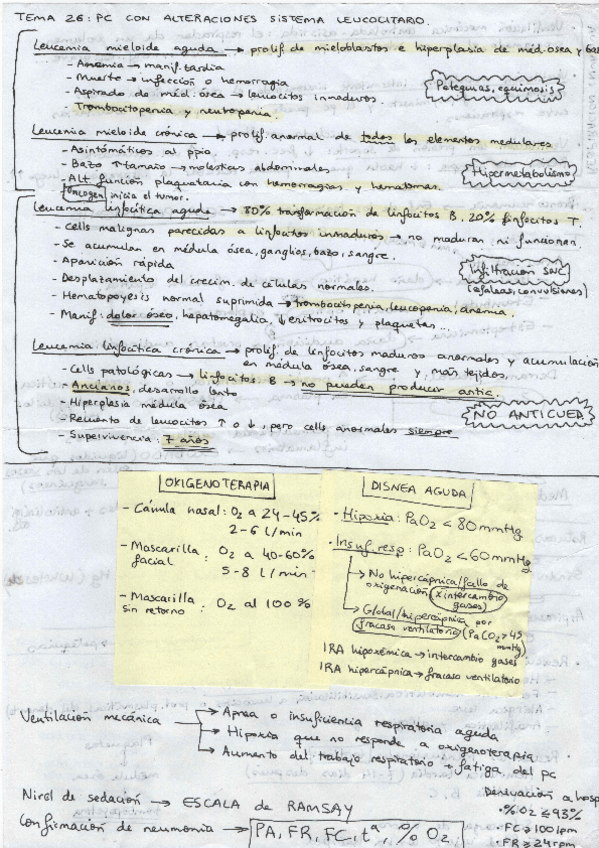 TEMA 26: PC CON ALTERACIONES SISTEMA LEUCOCITARIO.
Leucemia mieloide aguda → prolif de mieloblastos e hiperplasia de méd. ósea y
- Anemia → manif. tardía
- Muerte → infección o hemorragia
- Aspirado de méd. ósea → leucocitos inmaduros.
- Trombocitopenia y neutropenia.
Petequias, equimosis
Leucemia mieloide crónica → prolif. anormal de todos los elementos medulares
- Asintomáticos al ppio.
- Bazo ↑ tamaño → molestias abdominales.
- Alt función plaquetaria con hemorragias y hematomas.
Hipermetabolismo
oncogen inicia el tumor.
Leucemia linfocítica aguda → 80% transformación de linfocitos B, 20% linfocitos T.
- Cells malignas parecidas a linfocitos inmaduros → no maduran ni funcionan.
- Se acumulan en médula ósea, ganglios, bazo, sangre.
- Aparición rápida
- Desplazamiento del crecim. de células normales.
- Hematopoyesis normal suprimida → trombocitopenia, leucopenia, anemia.
- Manif: dolor óseo, hepatomegalia, ↓ eritrocitos y plaquetas...
Infiltración SNC
(cefaleas, convulsiones)
Leucemia linfocítica crónica → prolif. de linfocitos maduros anormales y acumulación
en médula ósea, sangre y más tejidos.
- Cells patológicas → linfocitos B → no pueden producir antic.
- Ancianos, desarrollo lento
- Hiperplasia médula ósea
- Recuento de leucocitos ↑ o ↓, pero cells anormales siempre
- Supervivencia: 7 años
NO ANTICUER.
OXIGENOTERAPIA
- Cánula nasal: O2 a 24-45%
2-6 l/min
- Mascarilla facial: O2 a 40-60%
5-8 l/min
- Mascarilla sin retorno: O2 al 100%
DISNEA AGUDA
- Hipoxia: PaO2 < 80mmHg
· Insuf. resp: PaO2 < 60mmHg
→ No hipercápnica/fallo de
oxigenación (x intercambio
gases)
→ Global/hipercápnica por
fracaso ventilatorio (PaCO2 > 45
mmHg)
IRA hipoxémica → intercambio gases
IRA hipercápnica → fracaso ventilatorio
Ventilación mecánica → Apnea o insuficiencia respiratoria aguda
→ Hipoxia que no responde a oxigenoterapia
→ Aumento del trabajo respiratorio + fatiga del pc
Nivel de sedación → ESCALA de RAMSAY
Confirmación de neumonía → PA, FR, FC, tª, % O2
Derivación a hosp
· % O2 ≤ 93%
· FC ≥ 100 lpm
· FR ≥ 24 rpm